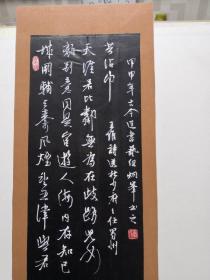 城闕輔三秦風煙望五津與君
離別意同是宦遊人海内存知己
天涯若比鄰無為在歧路兒女
共沾巾
王勃詩送杜少府之任蜀州
甲申年